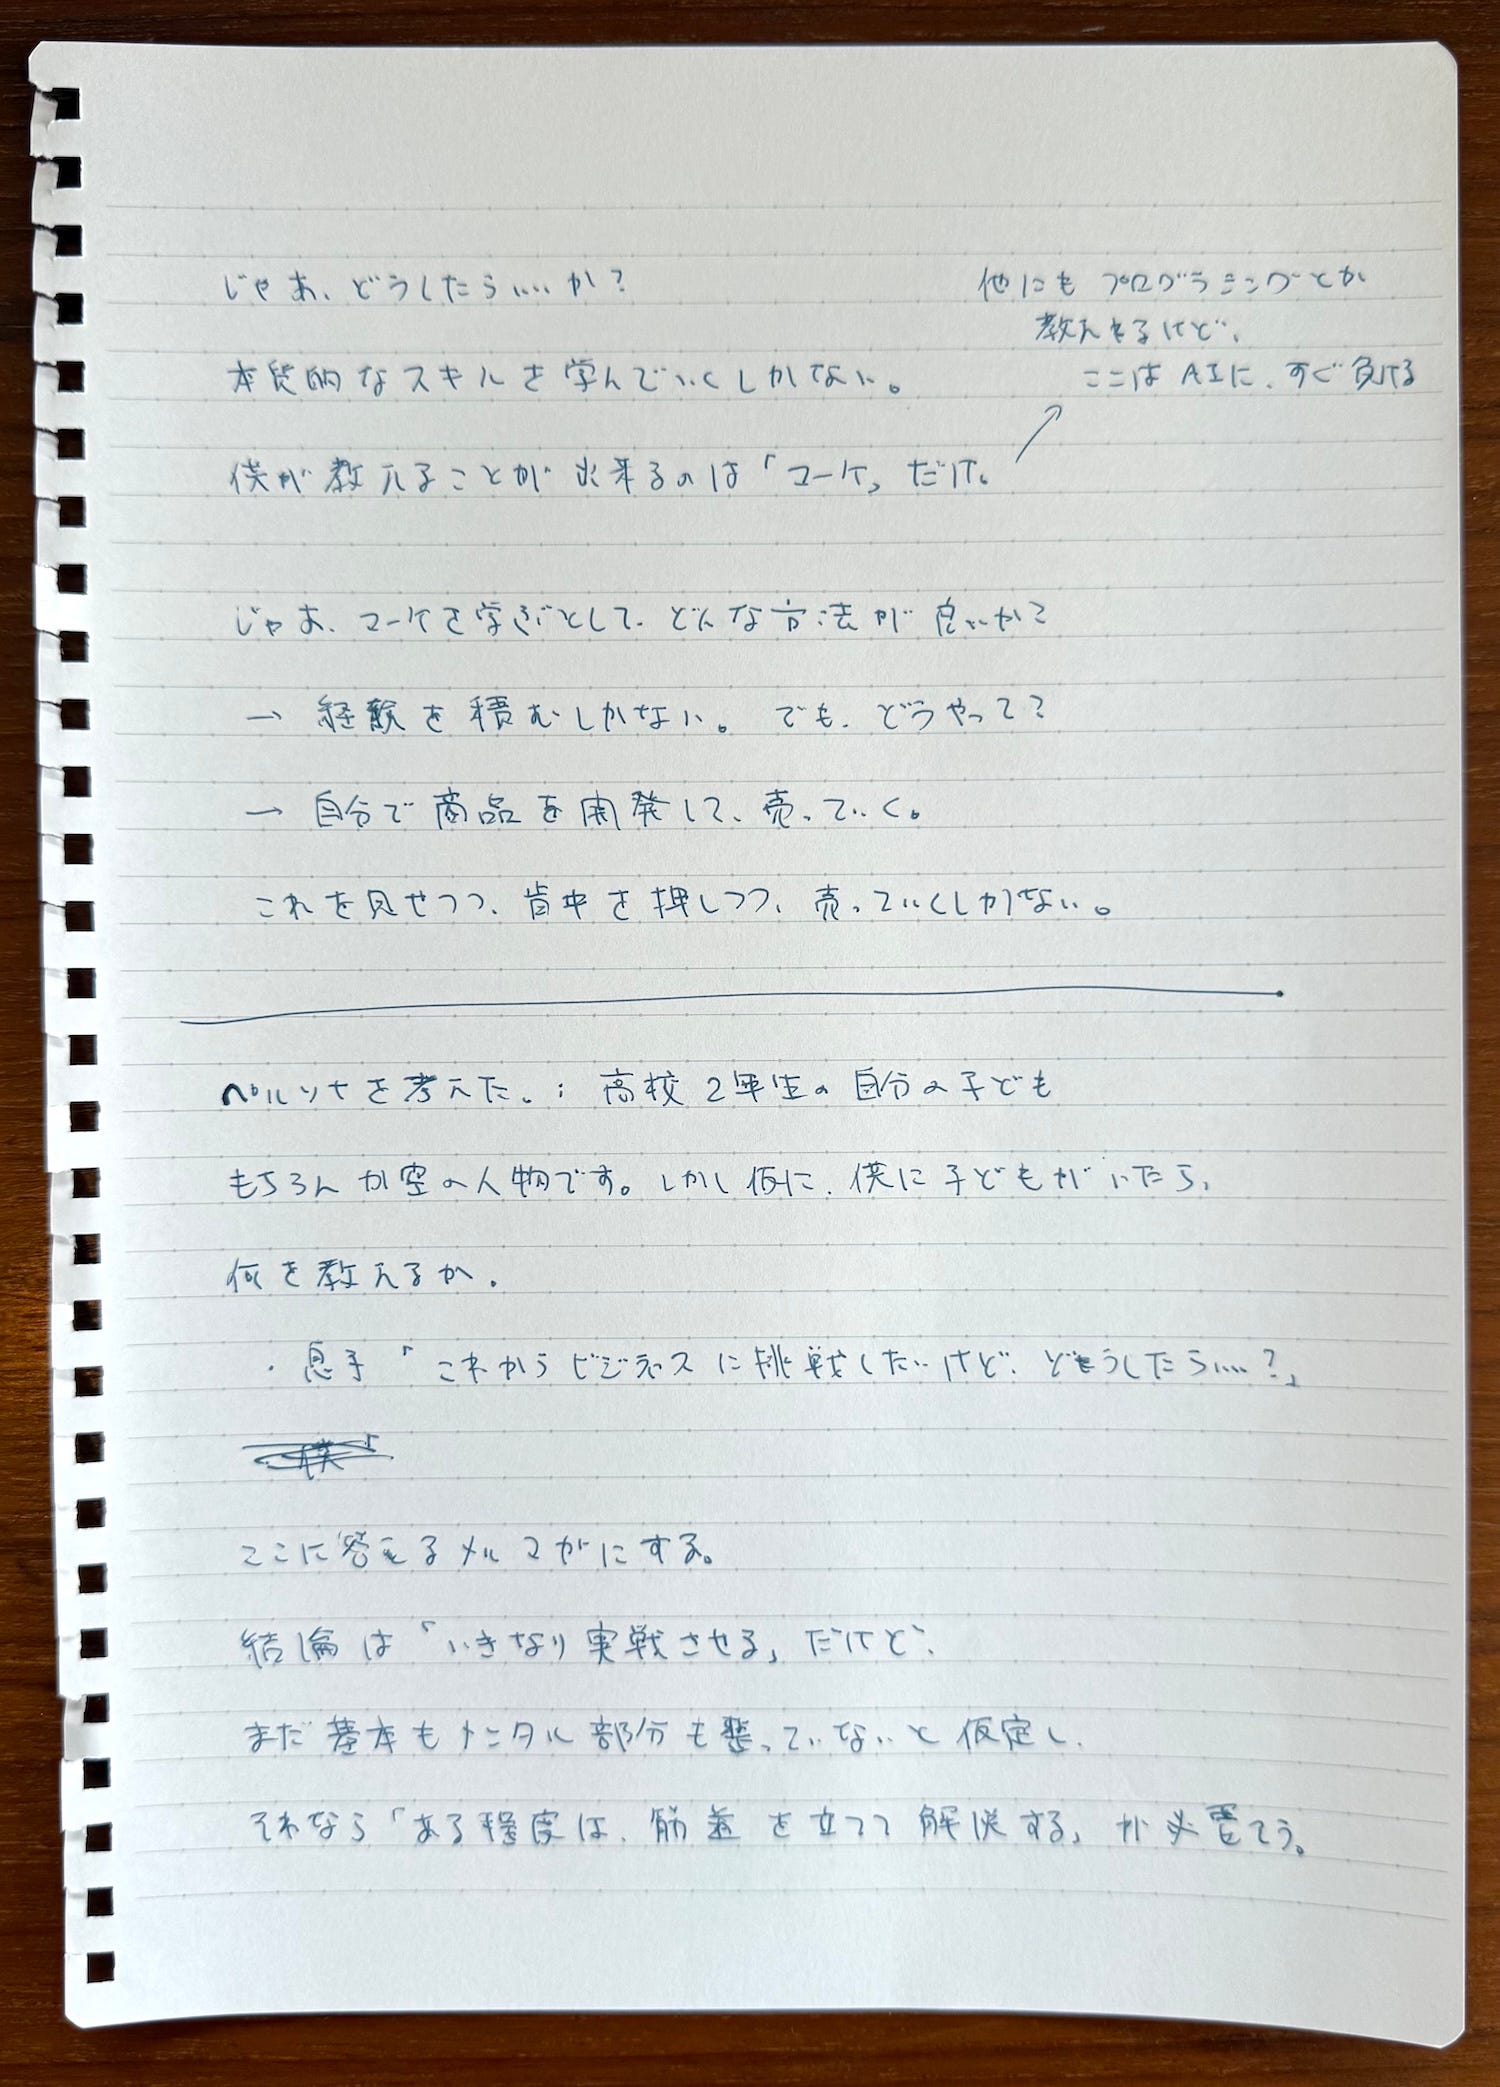 じゃあ、どうしたらいいか?
本質的なスキルを学んでいくしかない。
僕が教えることが出来るのは「マーケ」だけ。
他にもプログラミングとか
教えれるけど、
ここはAIに、すぐ負ける
じゃあ、マーケを学ぶとして、どんな方法が良いか?
→ 経験を積むしかない。でも、どうやって?
→ 自分で商品を開発して、売っていく。
これを見せつつ、背中を押しつつ、売っていくしかない。
ペルソナを考えた。: 高校2年生の自分の子ども
もちろん架空の人物です。しかし仮に、僕に子どもがいたら、
何を教えるか。
・息子「これからビジネスに挑戦したいけど、どうしたらいい?」
ここに答えるメルマガにする。
結論は「いきなり実戦させる」だけど、
まだ基本もメンタル部分も整っていないと仮定し、
それなら「ある程度は、筋道を立てて解説する」が必要そう。